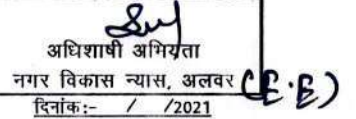 अधिशाषी अभियंता
नगर विकास न्यास, अलवर (E.E)
दिनांक:- / /2021